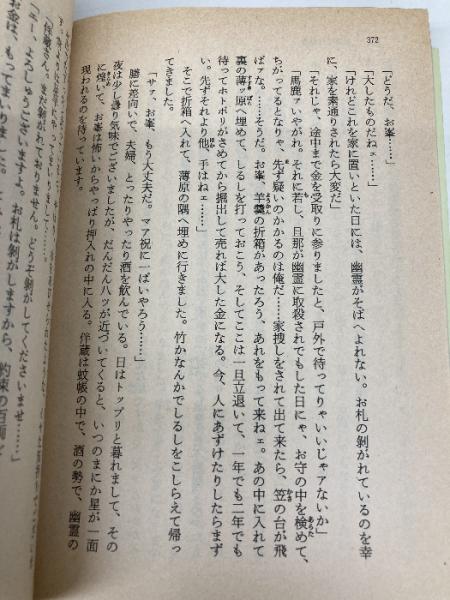 372
「どうだ、お峯……」
「大したものだねェ……」
「けれどこれを家に置いといた日には、幽霊がそばへよれない。お札の剝がれているのを幸
に、家を素通りされたら大変だ」
「それじゃ、途中まで金を受取りに参りましたと、戸外で待ってりゃいいじゃァないか」
「馬鹿ァいやがれ。それに若し、旦那が幽霊に取殺されでもした日にゃ、お守の中を検めて、
ちがってるとなりゃ、先ず疑いのかかるのは俺だ……家捜しをされて出て来たら、笠の台が飛
ばァな。……そうだ。お峯、羊羹の折箱があったろう、あれをもって来ねェ。あの中に入れて
裏の薄ッ原へ埋めて、しるしを打っておこう、そしてここは一旦立退いて、一年でも二年でも
待ってホトボリがさめてから掘出して売れば大した金になる。今、人にあずけたりしたらまず
い。先ずそれより他、手はねェ……」
そこで折箱へ入れて、薄原の隅へ埋めに行きました。竹かなんかでしるしをこしらえて帰っ
てきました。
「サァ、お峯、もう大丈夫だ。マア祝に一ぱいやろう……」
膳に差向いで、夫婦、とったりやったり酒を飲んでいる。日はトップリと暮れまして、その
夜は少し曇り気味でございましたが、だんだん八ツが近づいてくると、いつのまにか星が一面
に煌いて、お峯は怖いからやっぱり押入れの中に入る。伴蔵は蚊帳の中で、酒の勢で、幽霊の
現われるのを待っています。
「伴蔵さん。まだ剝がれておりません。どうぞ剝がしてくださいませ……」
「エー、よろしゅうございますよ。お札は剝がしますから、約束の百両
お金は、もってまいりました。